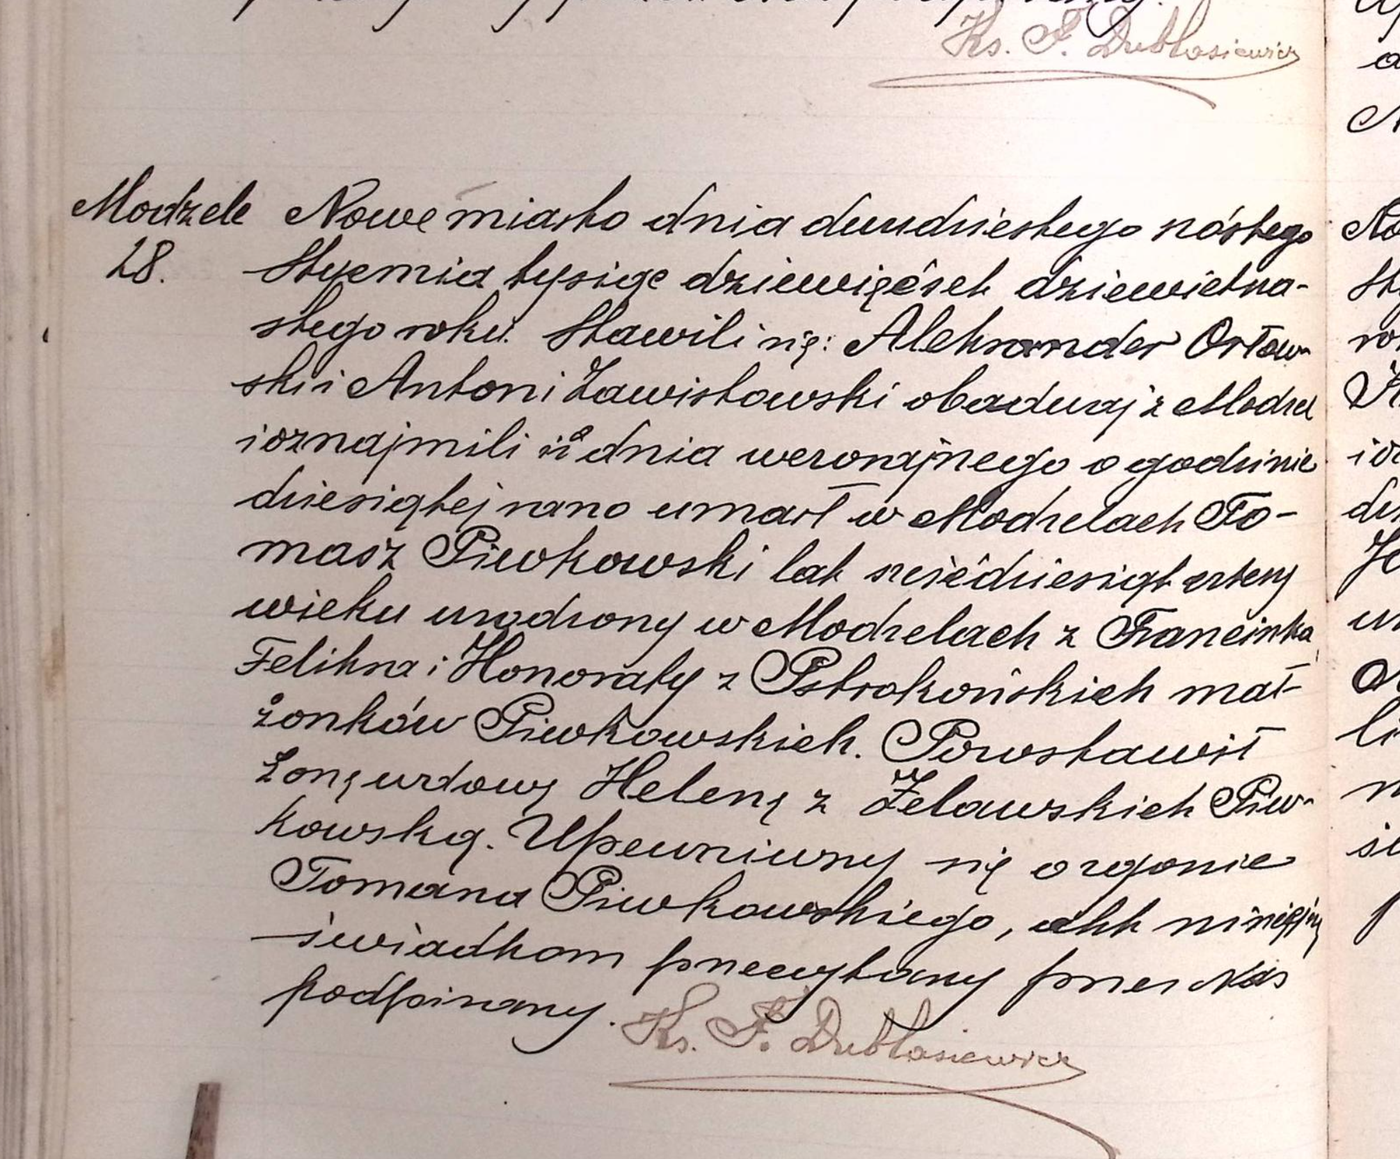 Ks. F. Dublasiewicz
Modzele Nowe miasto dnia dwudziestego szóstego
28. Stycznia tysiąc dziewięćset dziewietna-
stego roku. Stawili się: Aleksander Orłow-
ski i Antoni Zawistowski obadwaj z Modzel
i oznajmili iż dnia wczorajszego o godzinie
dziesiątej rano umarł w Modzelach To-
masz Piwkowski lat sześćdziesiąt cztery
wieku urodzony w Modzelach z Franciszka
Feliksa i Honoraty z Pstrokońskich mał-
żonków Piwkowskich. Pozostawił
żonę wdowę Helenę z Żelawskich Piw-
kowską. Upewniwszy się o zgonie
Tomasza Piwkowskiego, akt niniejszy
świadkom przeczytany przez Nas
podpisany. Ks. F. Dublasiewicz